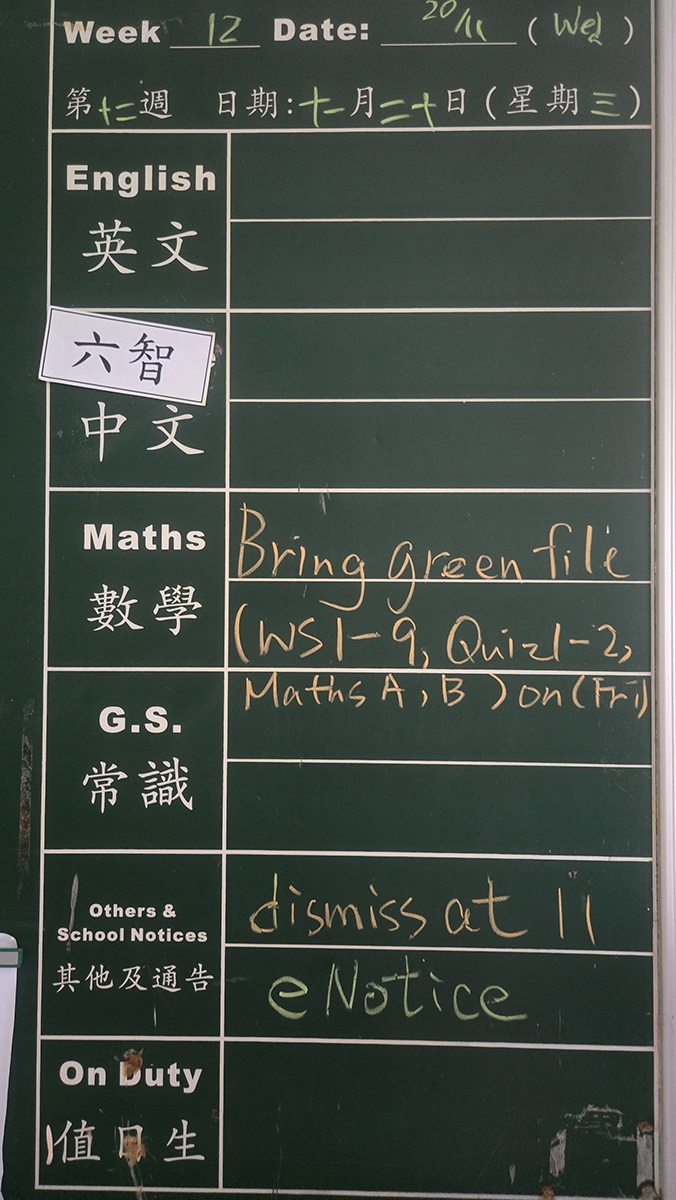 Week 12 Date: 20/11 (Wed)
第十二週 日期:十一月二十日(星期三)
English
英文
六智
中文
Maths
數學
Bring green file
(WS1-9, Quiz1-2,
Maths A, B) on (Fri)
G.S.
常識
Others &
School Notices
其他及通告
dismiss at 11
eNotice
On Duty
值日生